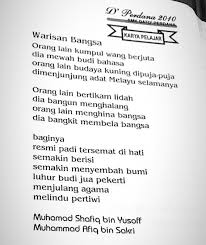 D' Perdana 2010
SMK DATO' PERDANA
KARYA PELAJAR
Warisan Bangsa
Orang lain kumpul wang berjuta
dia mewah budi bahasa
orang lain budaya kuning dipuja-puja
dimenjunjung adat Melayu selamanya
Orang lain bertikam lidah
dia bangun menghalang
orang lain menghina bangsa
dia bangkit membela bangsa
baginya
resmi padi tersemat di hati
semakin berisi
semakin menyembah bumi
luhur budi jua pekerti
menjulang agama
melindu pertiwi
Muhamad Shafiq bin Yusoff
Muhammad Afiq bin Sakri